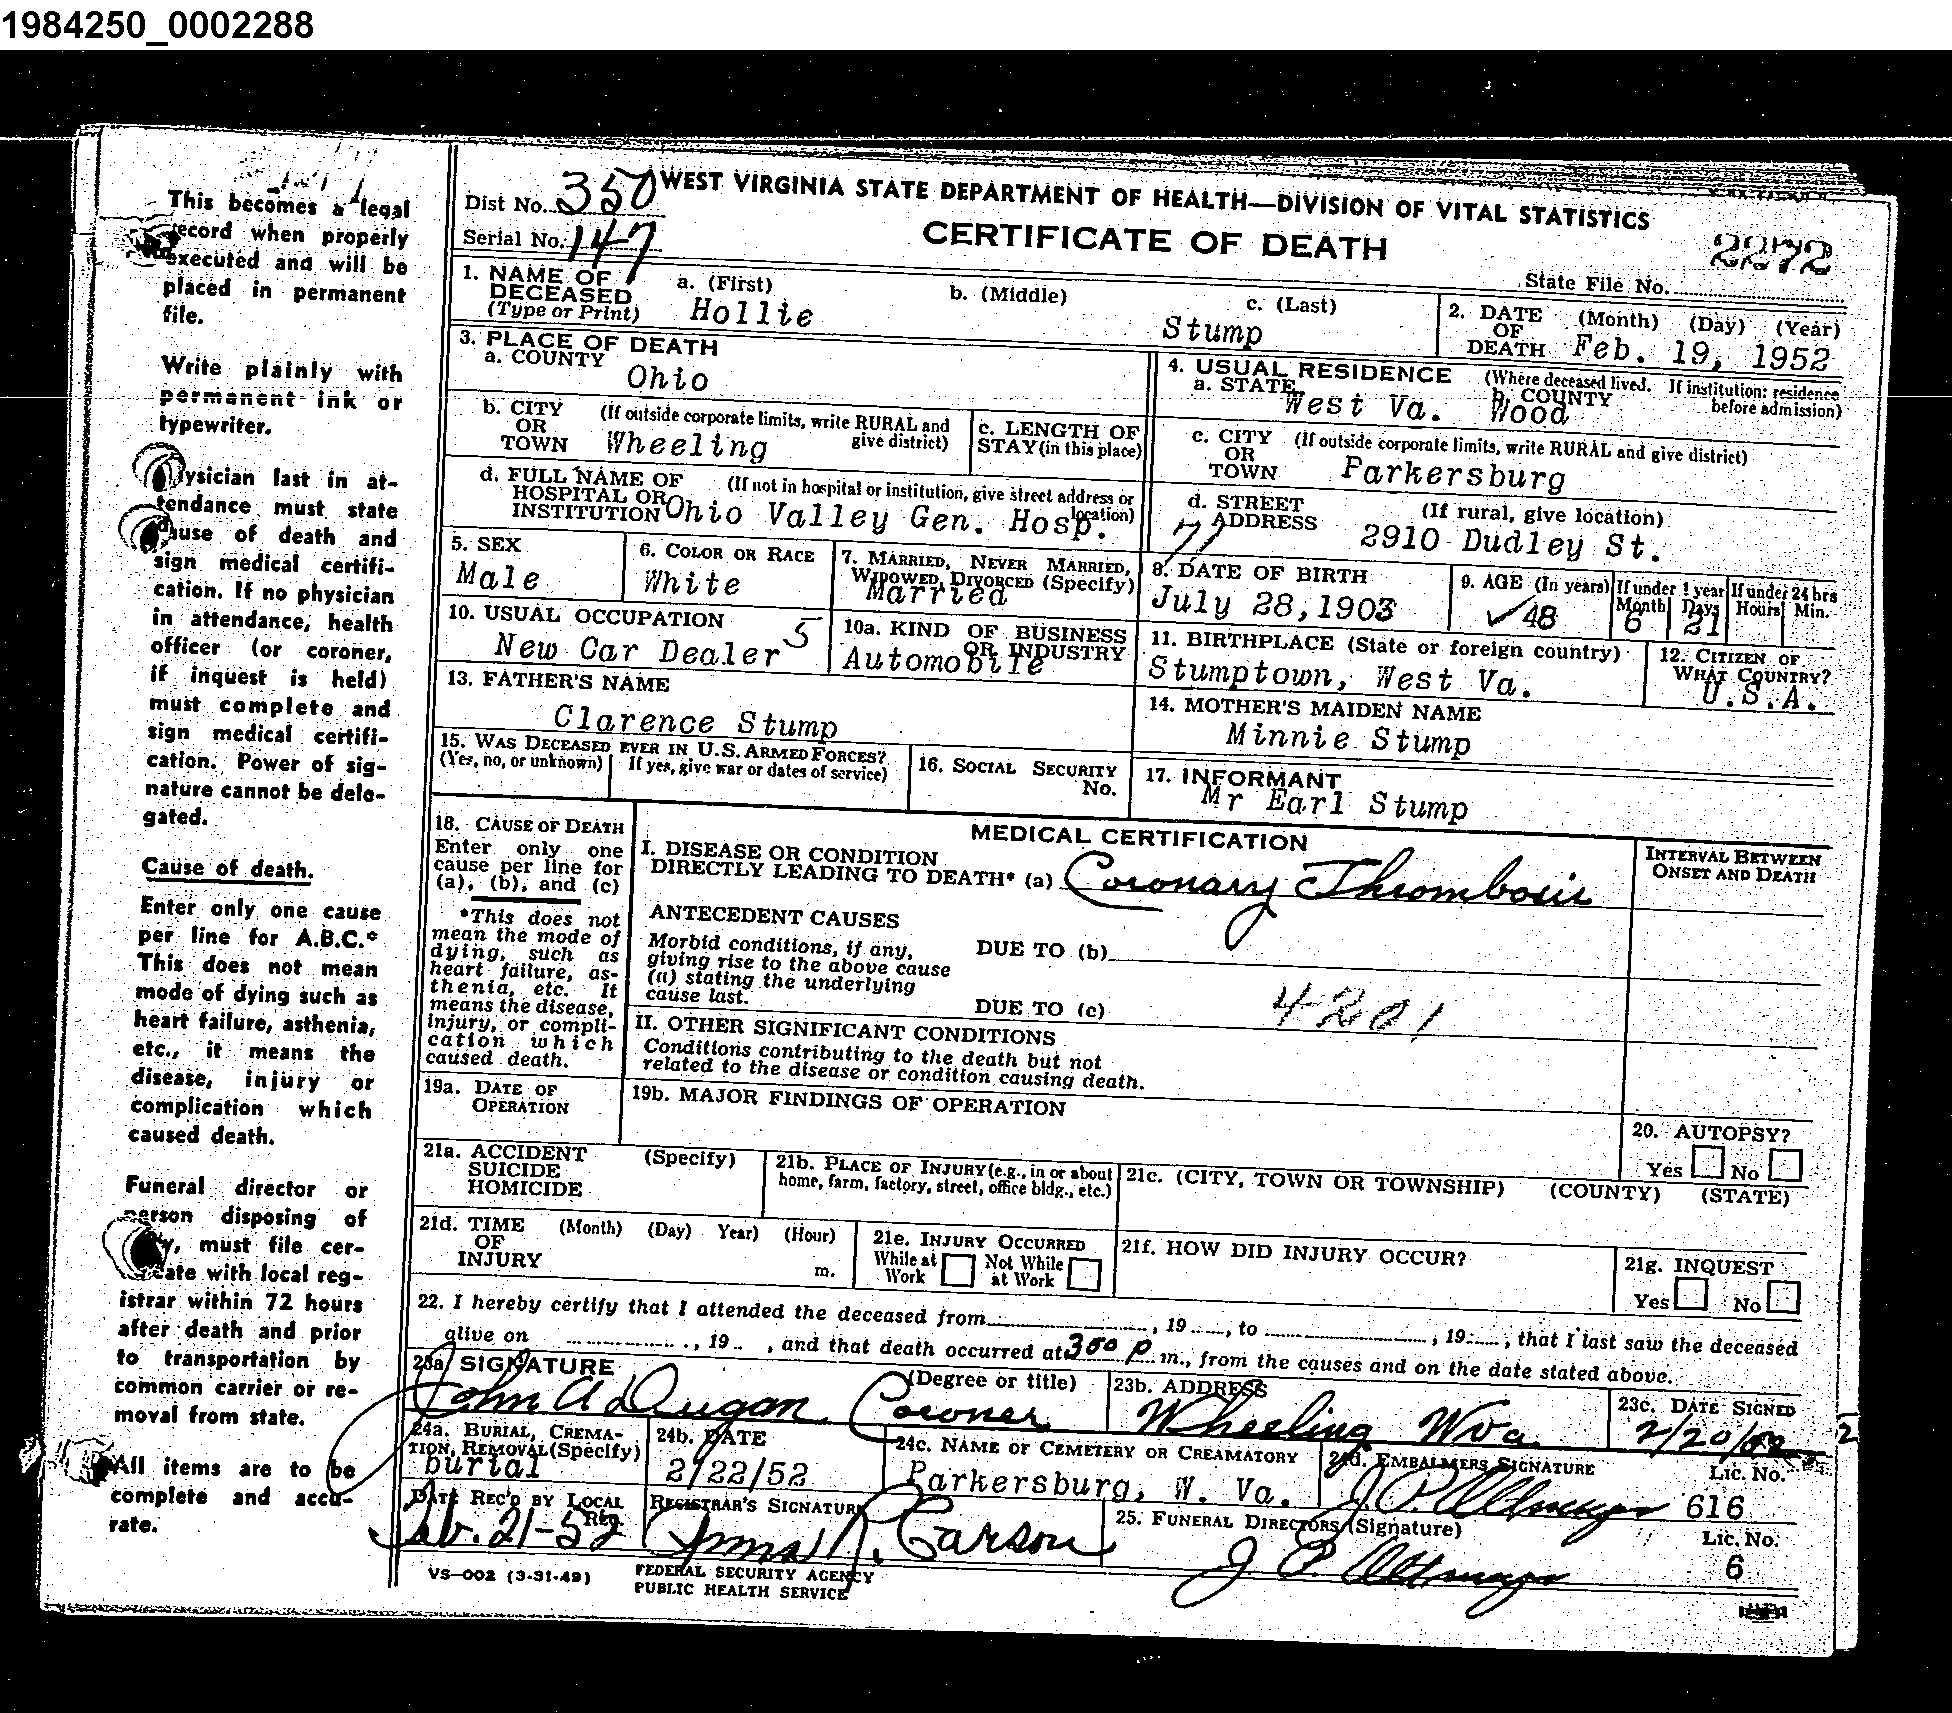 1984250_0002288
This becomes a legal
record when properly
executed and will be
placed in permanent
file.
Write plainly with
permanent ink or
typewriter.
ysician last in at-
tendance must state
cause of death and
sign medical certifi-
cation. If no physician
in attendance, health
officer (or coroner,
if inquest is held)
must complete and
sign medical certifi-
cation. Power of sig-
nature cannot be dele-
gated.
Cause of death.
Enter only one cause
per line for A.B.C.*
This does not mean
mode of dying such as
heart failure, asthenia,
etc., it means the
disease, injury or
complication which
caused death.
Funeral director or
person disposing of
y, must file cer-
cate with local reg-
istrar within 72 hours
after death and prior
to transportation by
common carrier or re-
moval from state.
All items are to be
complete and accu-
rate.
Dist No. 350 WEST VIRGINIA STATE DEPARTMENT OF HEALTH—DIVISION OF VITAL STATISTICS
Serial No. 147 CERTIFICATE OF DEATH 2272
State File No.
1. NAME OF DECEASED (Type or Print) a. (First) Hollie b. (Middle) c. (Last) Stump
2. DATE OF DEATH (Month) (Day) (Year) Feb. 19, 1952
3. PLACE OF DEATH
a. COUNTY Ohio
4. USUAL RESIDENCE (Where deceased lived. If institution: residence before admission)
a. STATE West Va. b. COUNTY Wood
b. CITY OR TOWN (If outside corporate limits, write RURAL and give district) Wheeling
c. LENGTH OF STAY (in this place)
c. CITY OR TOWN (If outside corporate limits, write RURAL and give district) Parkersburg
d. FULL NAME OF HOSPITAL OR INSTITUTION (If not in hospital or institution, give street address or location) Ohio Valley Gen. Hosp.
d. STREET ADDRESS (If rural, give location) 2910 Dudley St.
5. SEX Male
6. COLOR OR RACE White
7. MARRIED, NEVER MARRIED, WIDOWED, DIVORCED (Specify) Married
8. DATE OF BIRTH July 28,1903
9. AGE (In years) 48 If under 1 year Month 6 Days 21 If under 24 hrs Hours Min.
10. USUAL OCCUPATION New Car Dealer 5
10a. KIND OF BUSINESS OR INDUSTRY Automobile
11. BIRTHPLACE (State or foreign country) Stumptown, West Va.
12. CITIZEN OF WHAT COUNTRY? U.S.A.
13. FATHER'S NAME Clarence Stump
14. MOTHER'S MAIDEN NAME Minnie Stump
15. WAS DECEASED EVER IN U.S. ARMED FORCES? (Yes, no, or unknown) If yes, give war or dates of service)
16. SOCIAL SECURITY No.
17. INFORMANT Mr Earl Stump
18. CAUSE OF DEATH
Enter only one
cause per line for
(a), (b), and (c)
*This does not
mean the mode of
dying, such as
heart failure, as-
thenia, etc. It
means the disease,
injury, or compli-
cation which
caused death.
MEDICAL CERTIFICATION
INTERVAL BETWEEN ONSET AND DEATH
I. DISEASE OR CONDITION
DIRECTLY LEADING TO DEATH* (a) Coronary Thrombosis
ANTECEDENT CAUSES
Morbid conditions, if any,
giving rise to the above cause
(a) stating the underlying
cause last.
DUE TO (b)
DUE TO (c) 4201
II. OTHER SIGNIFICANT CONDITIONS
Conditions contributing to the death but not
related to the disease or condition causing death.
19a. DATE OF OPERATION
19b. MAJOR FINDINGS OF OPERATION
20. AUTOPSY?
Yes No
21a. ACCIDENT SUICIDE HOMICIDE (Specify)
21b. PLACE OF INJURY (e.g., in or about home, farm, factory, street, office bldg., etc.)
21c. (CITY, TOWN OR TOWNSHIP) (COUNTY) (STATE)
21d. TIME OF INJURY (Month) (Day) Year) (Hour) m.
21e. INJURY OCCURRED
While at Work Not While at Work
21f. HOW DID INJURY OCCUR?
21g. INQUEST
Yes No
22. I hereby certify that I attended the deceased from , 19 , to , 19 , that I last saw the deceased
alive on , 19 , and that death occurred at 300 P m., from the causes and on the date stated above.
23a. SIGNATURE (Degree or title) John A Dugan Coroner
23b. ADDRESS Wheeling Wva
23c. DATE SIGNED 2/20/52
24a. BURIAL, CREMATION, REMOVAL (Specify) burial
24b. DATE 2/22/52
24c. NAME OF CEMETERY OR CREAMATORY Parkersburg, W. Va.
24d. EMBALMERS SIGNATURE Lic. No. 616
DATE REC'D BY LOCAL REG. Feb. 21-52
REGISTRAR'S SIGNATURE Carson
25. FUNERAL DIRECTORS (Signature) Lic. No. 6
VS—002 (3-31-49)
FEDERAL SECURITY AGENCY
PUBLIC HEALTH SERVICE